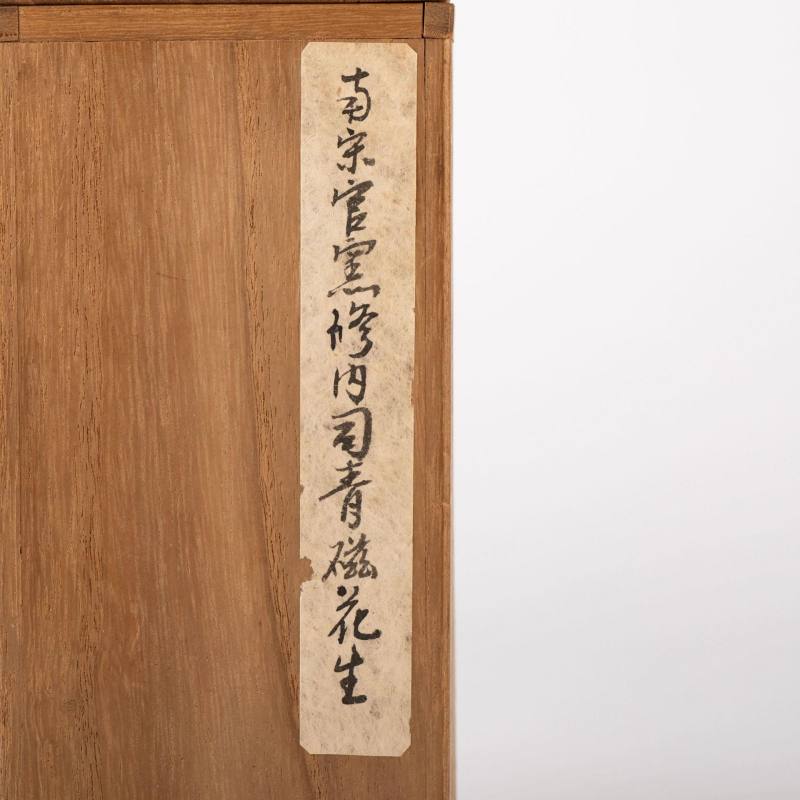 南宋官窯修内司青磁花生